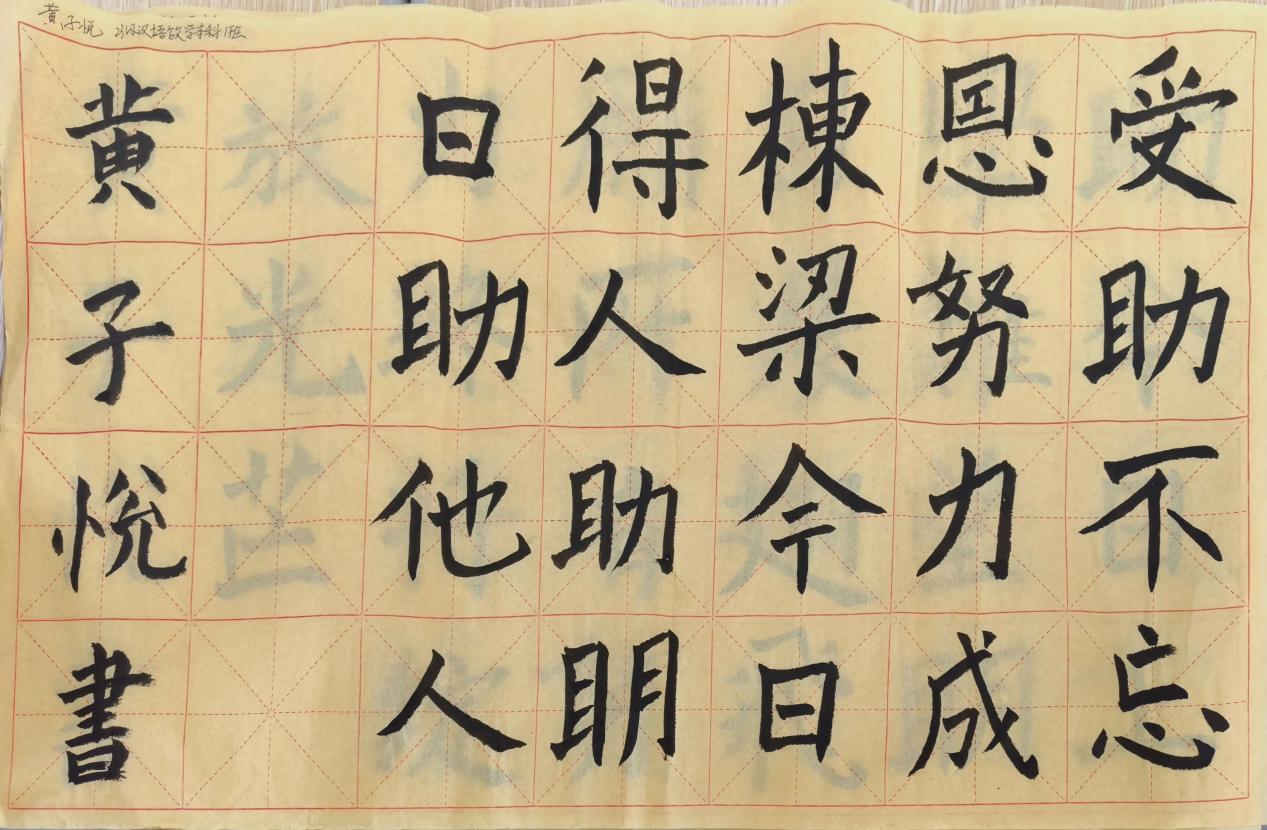 黄子悦 本科1班
受助不忘
恩努力成
棟梁今日
得人助眀
日助他人
黄子悦書